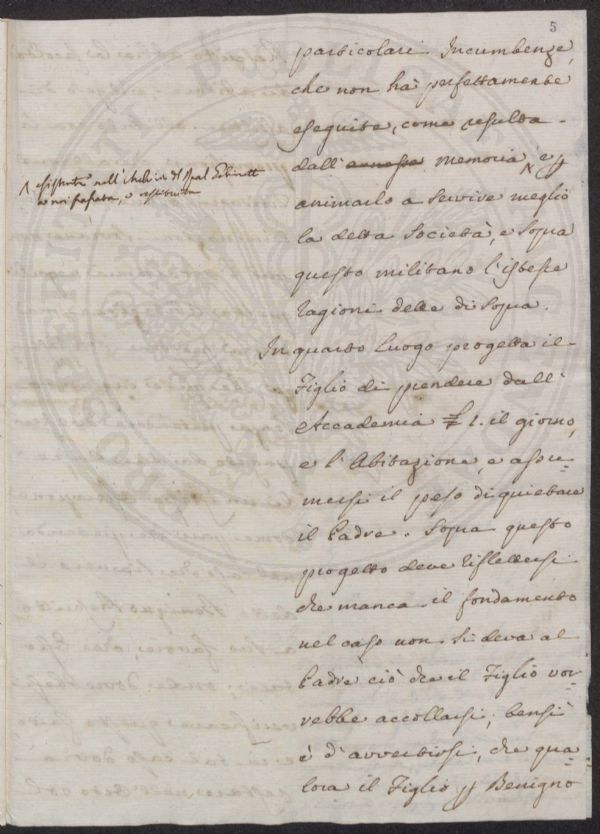 5
particolari Incumbenze,
che non hà perfettamente
eseguite, come resulta
dall' annessa memoria, e p
esistente nell'Archivio del Real Gabinetto
e
animarlo a servire meglio
la detta Società, e sopra
questo militano l'istesse
ragioni dette di sopra.
In quarto luogo progetta il
Figlio di prendere dall'
Accademia £ 1. il giorno,
e l'Abitazione, e assu-
mersi il peso di quietare
il Padre. Sopra questo
progetto deve riflettersi
che manca il fondamento
nel caso non si deva al
Padre ciò che il Figlio vor-
rebbe accollarsi; bensì
è d'avvertirsi, che qua
lora il Figlio p Benigno